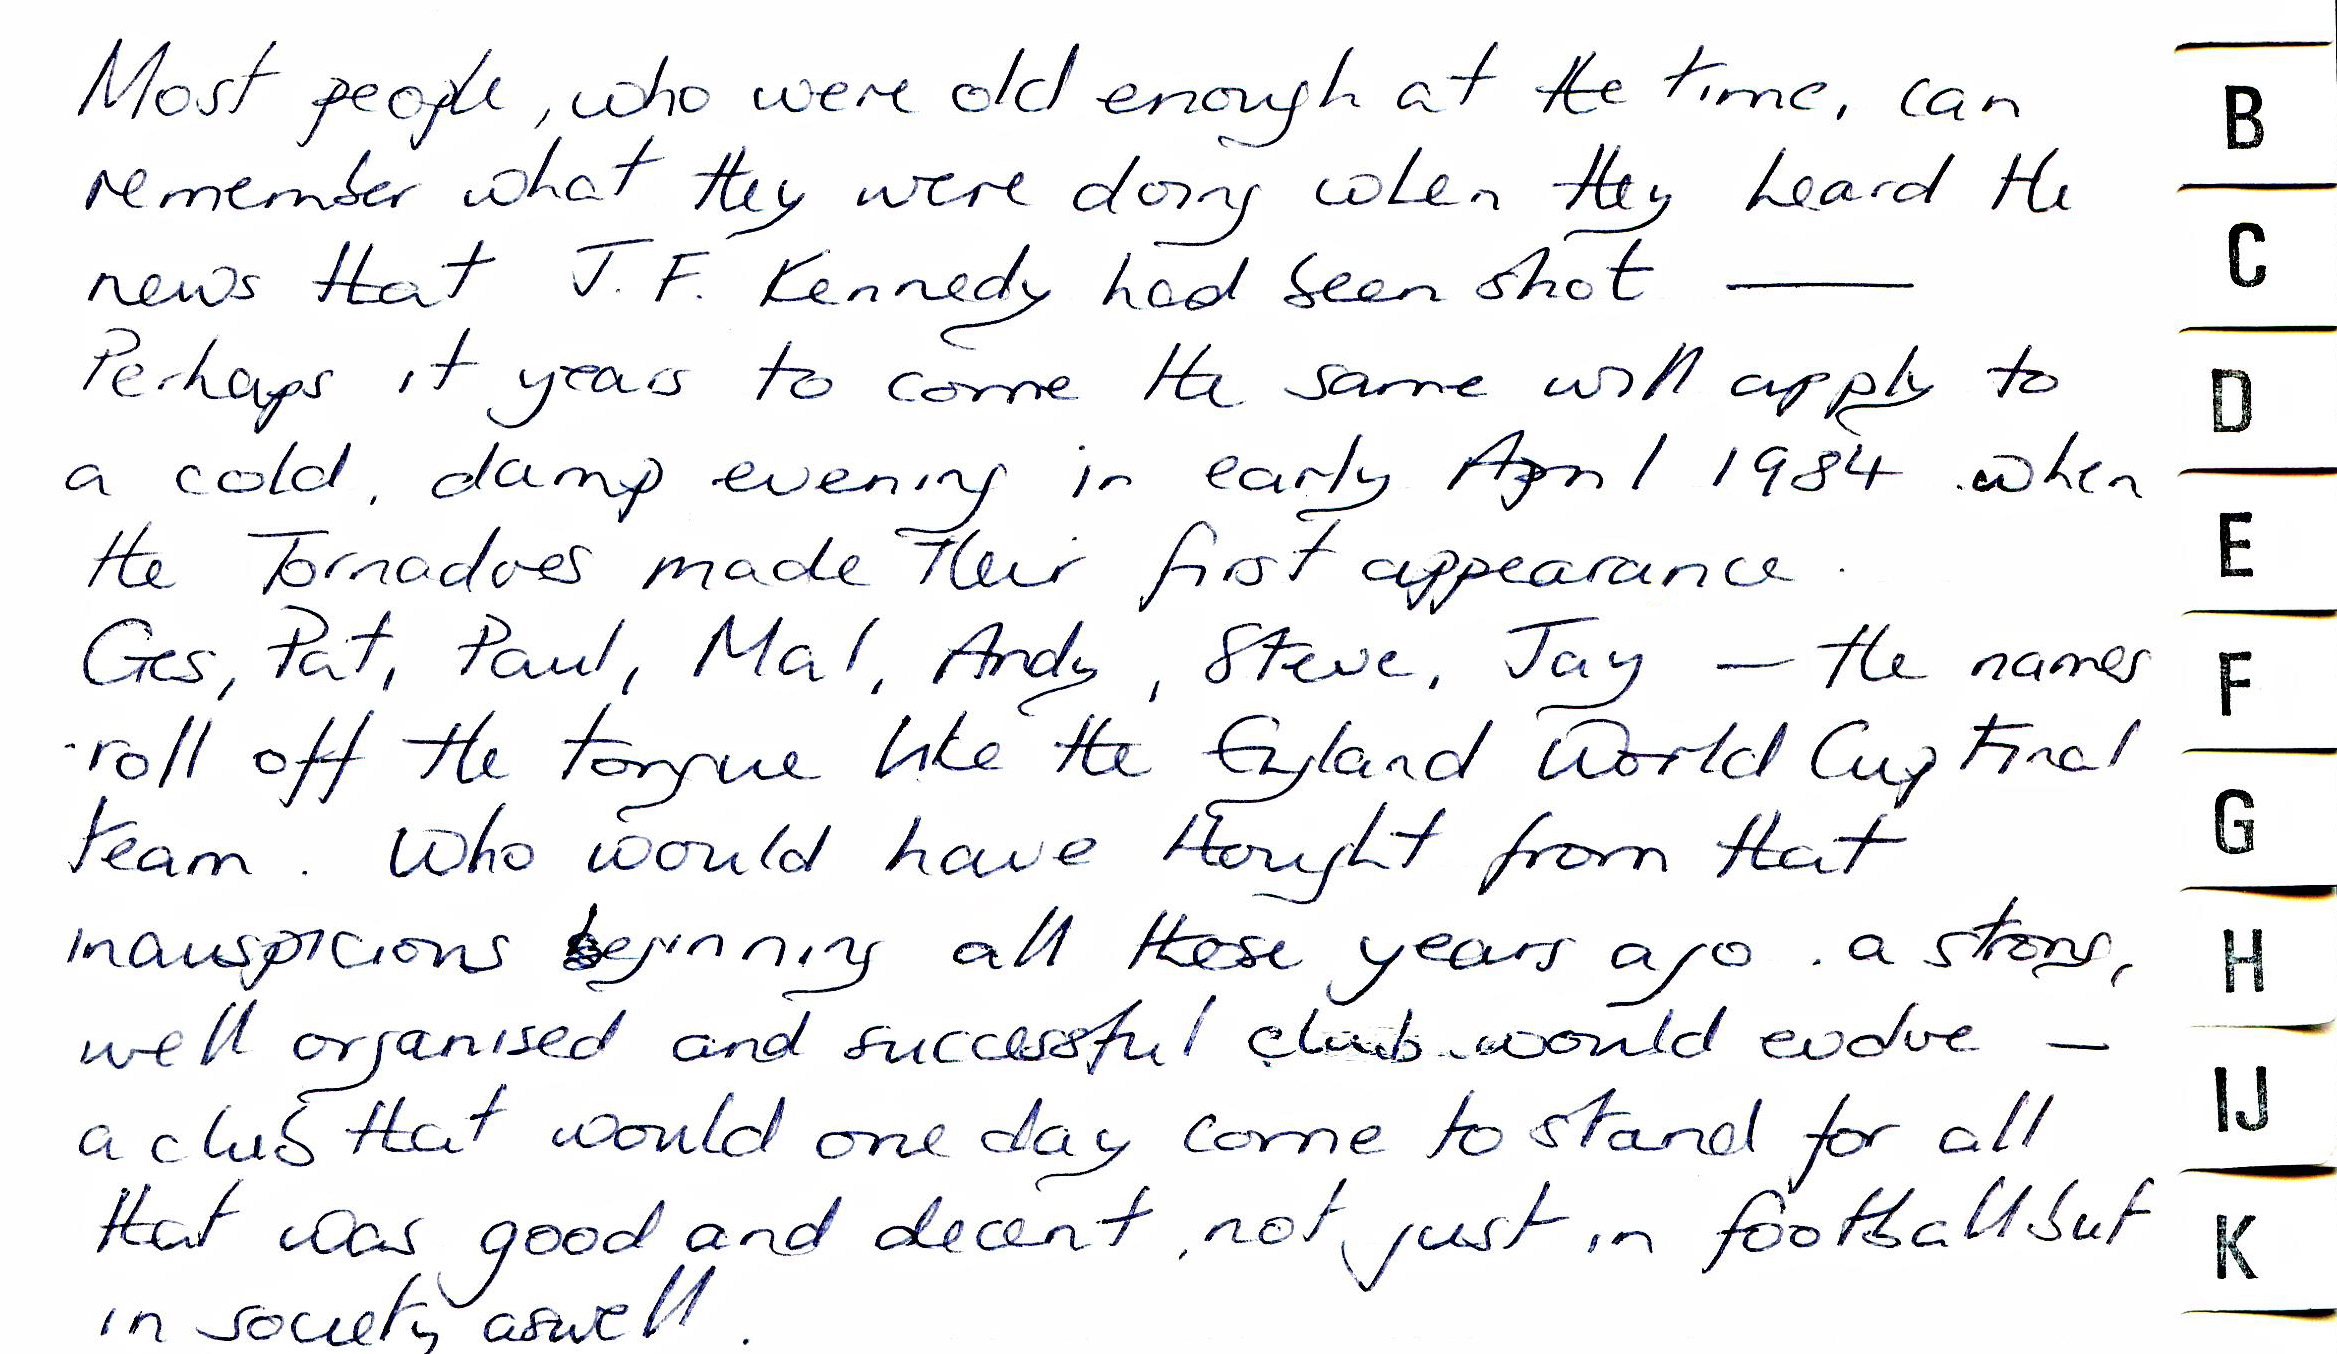 Most people, who were old enough at the time, can
remember what they were doing when they heard the
news that J.F. Kennedy had been shot —
Perhaps it years to come the same will apply to
a cold, damp evening in early April 1984 when
the Tornadoes made their first appearance.
Ges, Pat, Paul, Mal, Andy, Steve, Jay — the names
roll off the tongue like the England World Cup Final
team. Who would have thought from that
inauspicious beginning all those years ago. a strong,
well organised and successful club would evolve —
a club that would one day come to stand for all
that was good and decent, not just in football but
in society aswell.
B
C
D
E
F
G
H
IJ
K